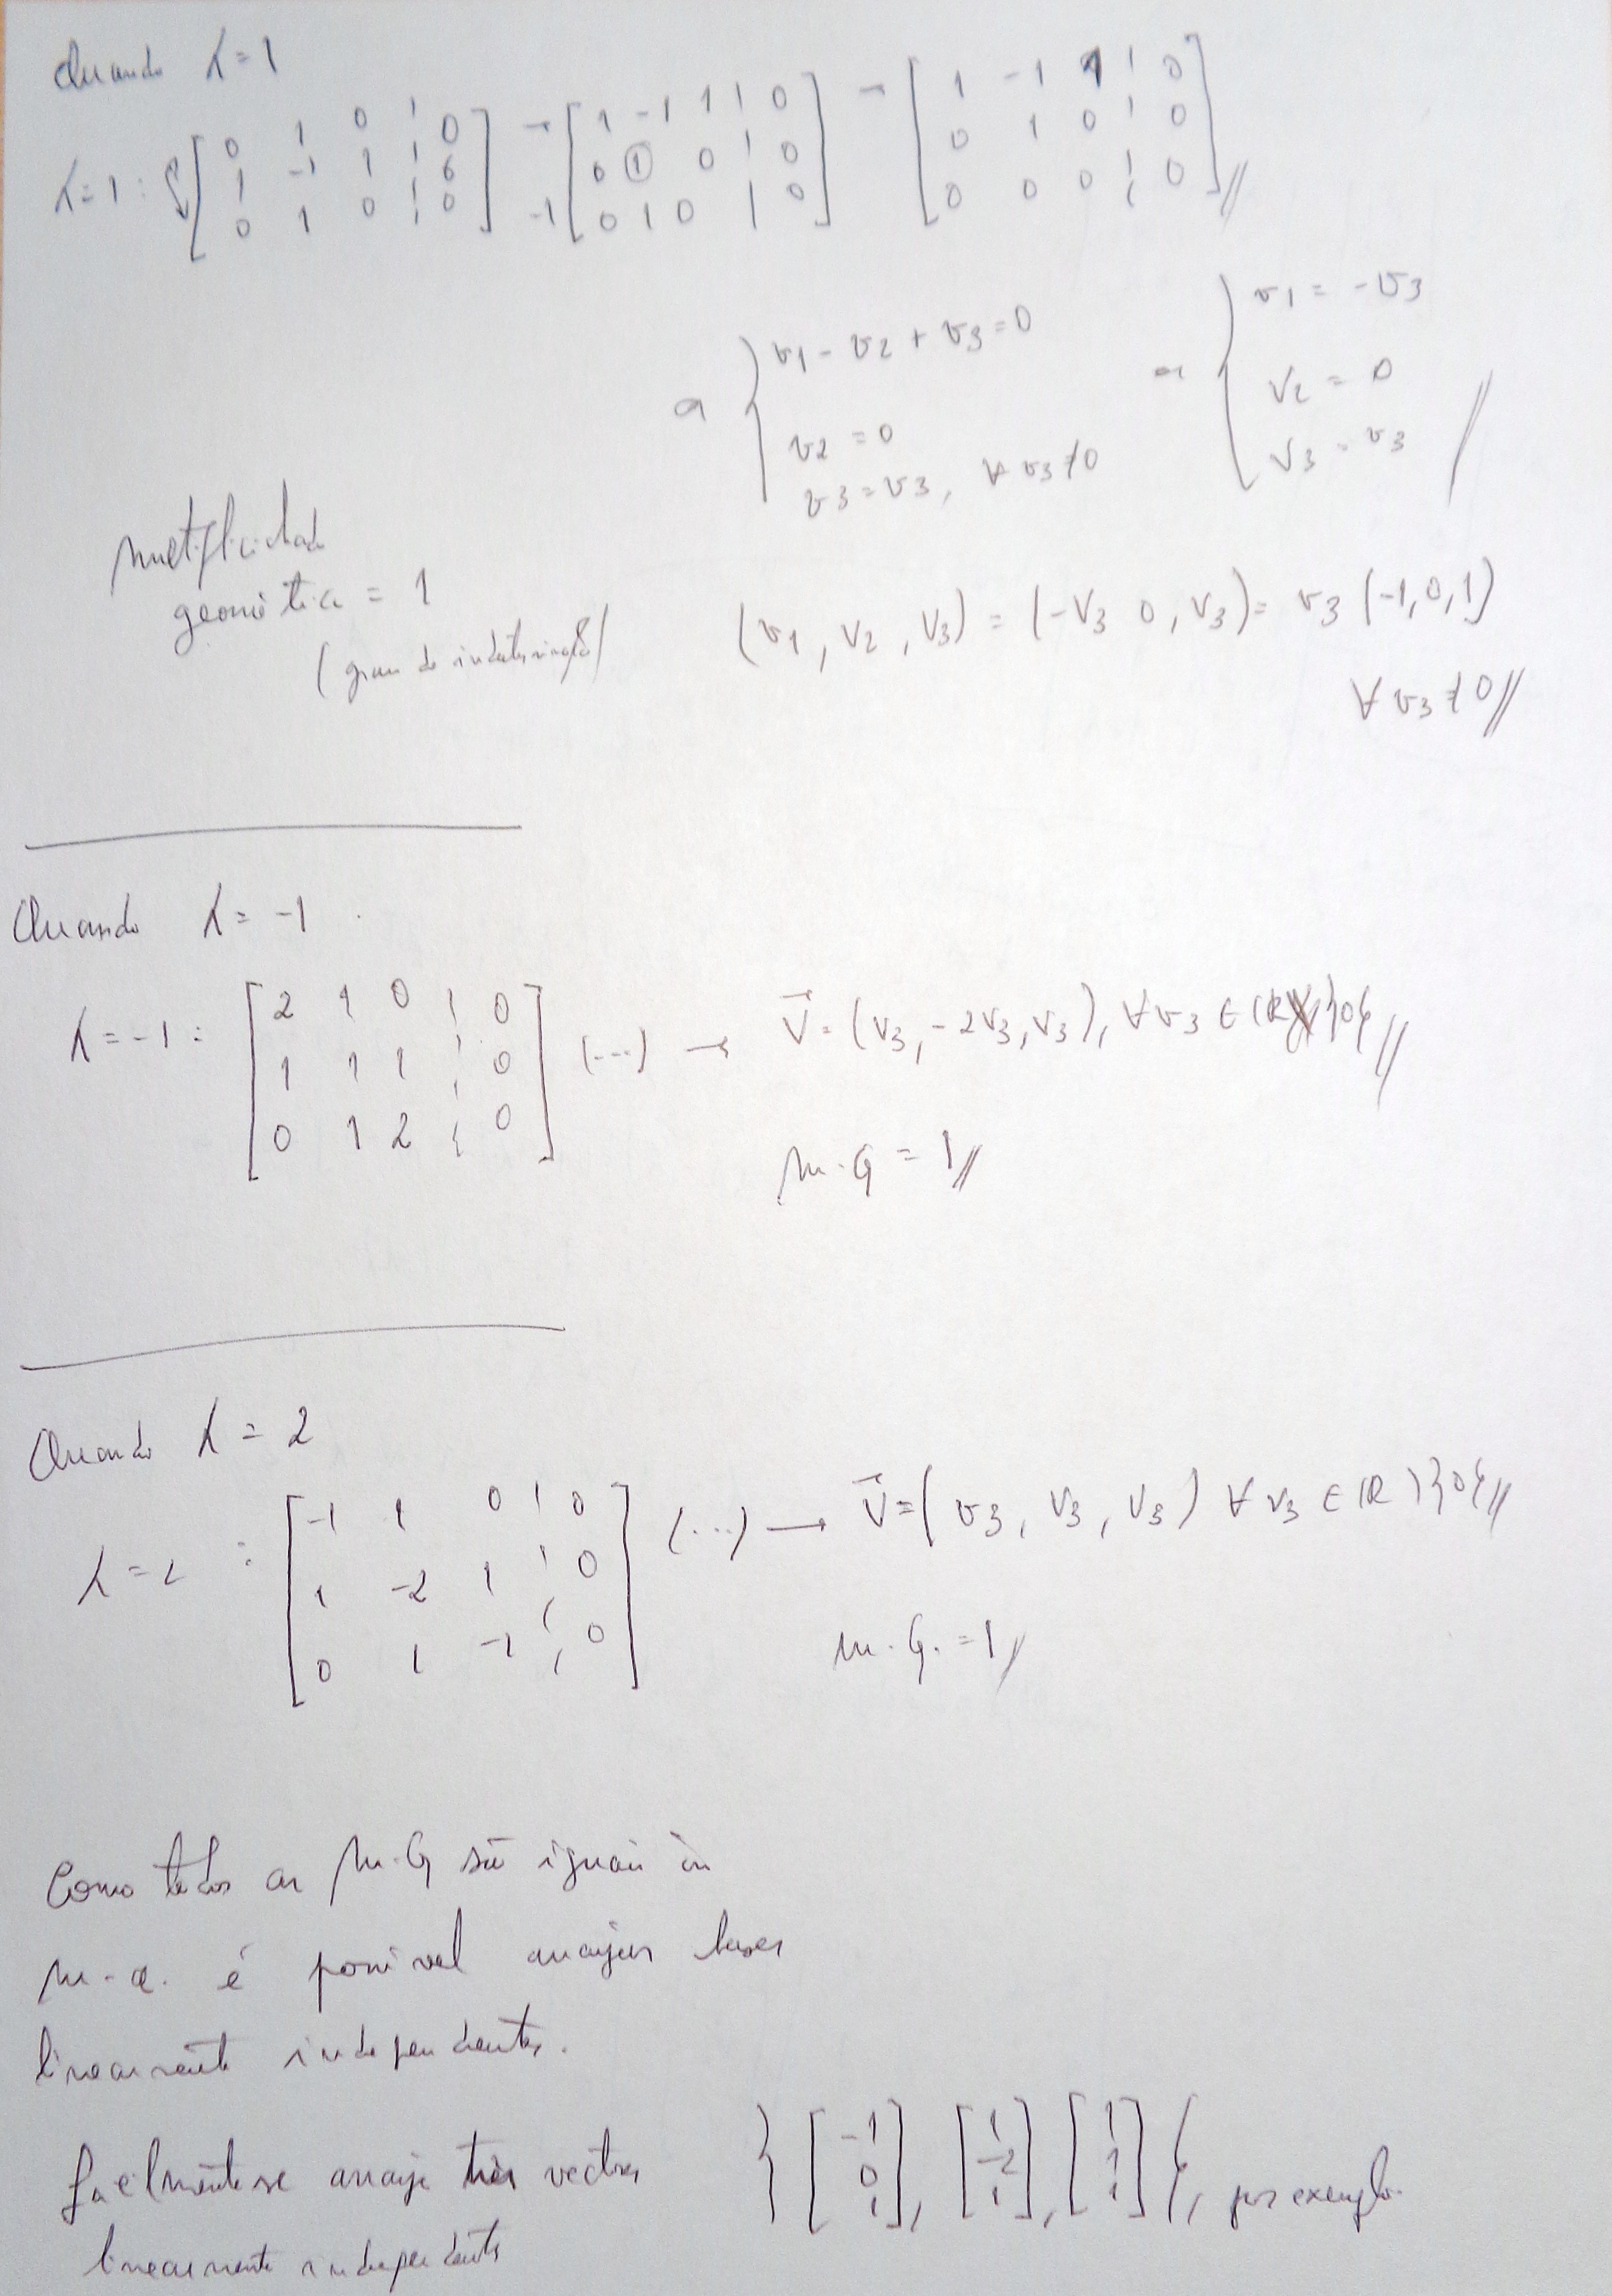 Quando λ=1
λ=1: [0 1 0 | 0
1 -1 1 | 0
0 1 0 | 0] → [1 -1 1 | 0
0 1 0 | 0
-1 0 1 0 | 0] → [1 -1 1 | 0
0 1 0 | 0
0 0 0 | 0]//
{ v1 - v2 + v3 = 0
v2 = 0
v3 = v3, ∀ v3 ≠ 0
{ v1 = -v3
v2 = 0
v3 = v3 //
multiplicidade
geométrica = 1
(grau de indeterminação)
(v1, v2, v3) = (-v3 0, v3) = v3 (-1,0,1)
∀ v3 ≠ 0//
Quando λ = -1
λ = -1: [2 1 0 | 0
1 1 1 | 0
0 1 2 | 0] (...) → V⃗ = (v3, -2v3, v3), ∀ v3 ∈ ℝ\}0{//
m.G = 1//
Quando λ = 2
λ=2: [-1 1 0 | 0
1 -2 1 | 0
0 1 -1 | 0] (...) → V⃗ = (v3, v3, v3) ∀ v3 ∈ ℝ\}0{//
m.G. = 1/
Como todos as m.G são iguais às
m.a. é possivel arranjar bases
linearmente independentes.
facilmente se arranja três vectores
linearmente independentes
}[-1
0
1], [1
-2
1], [1
1
1]{, por exemplo.